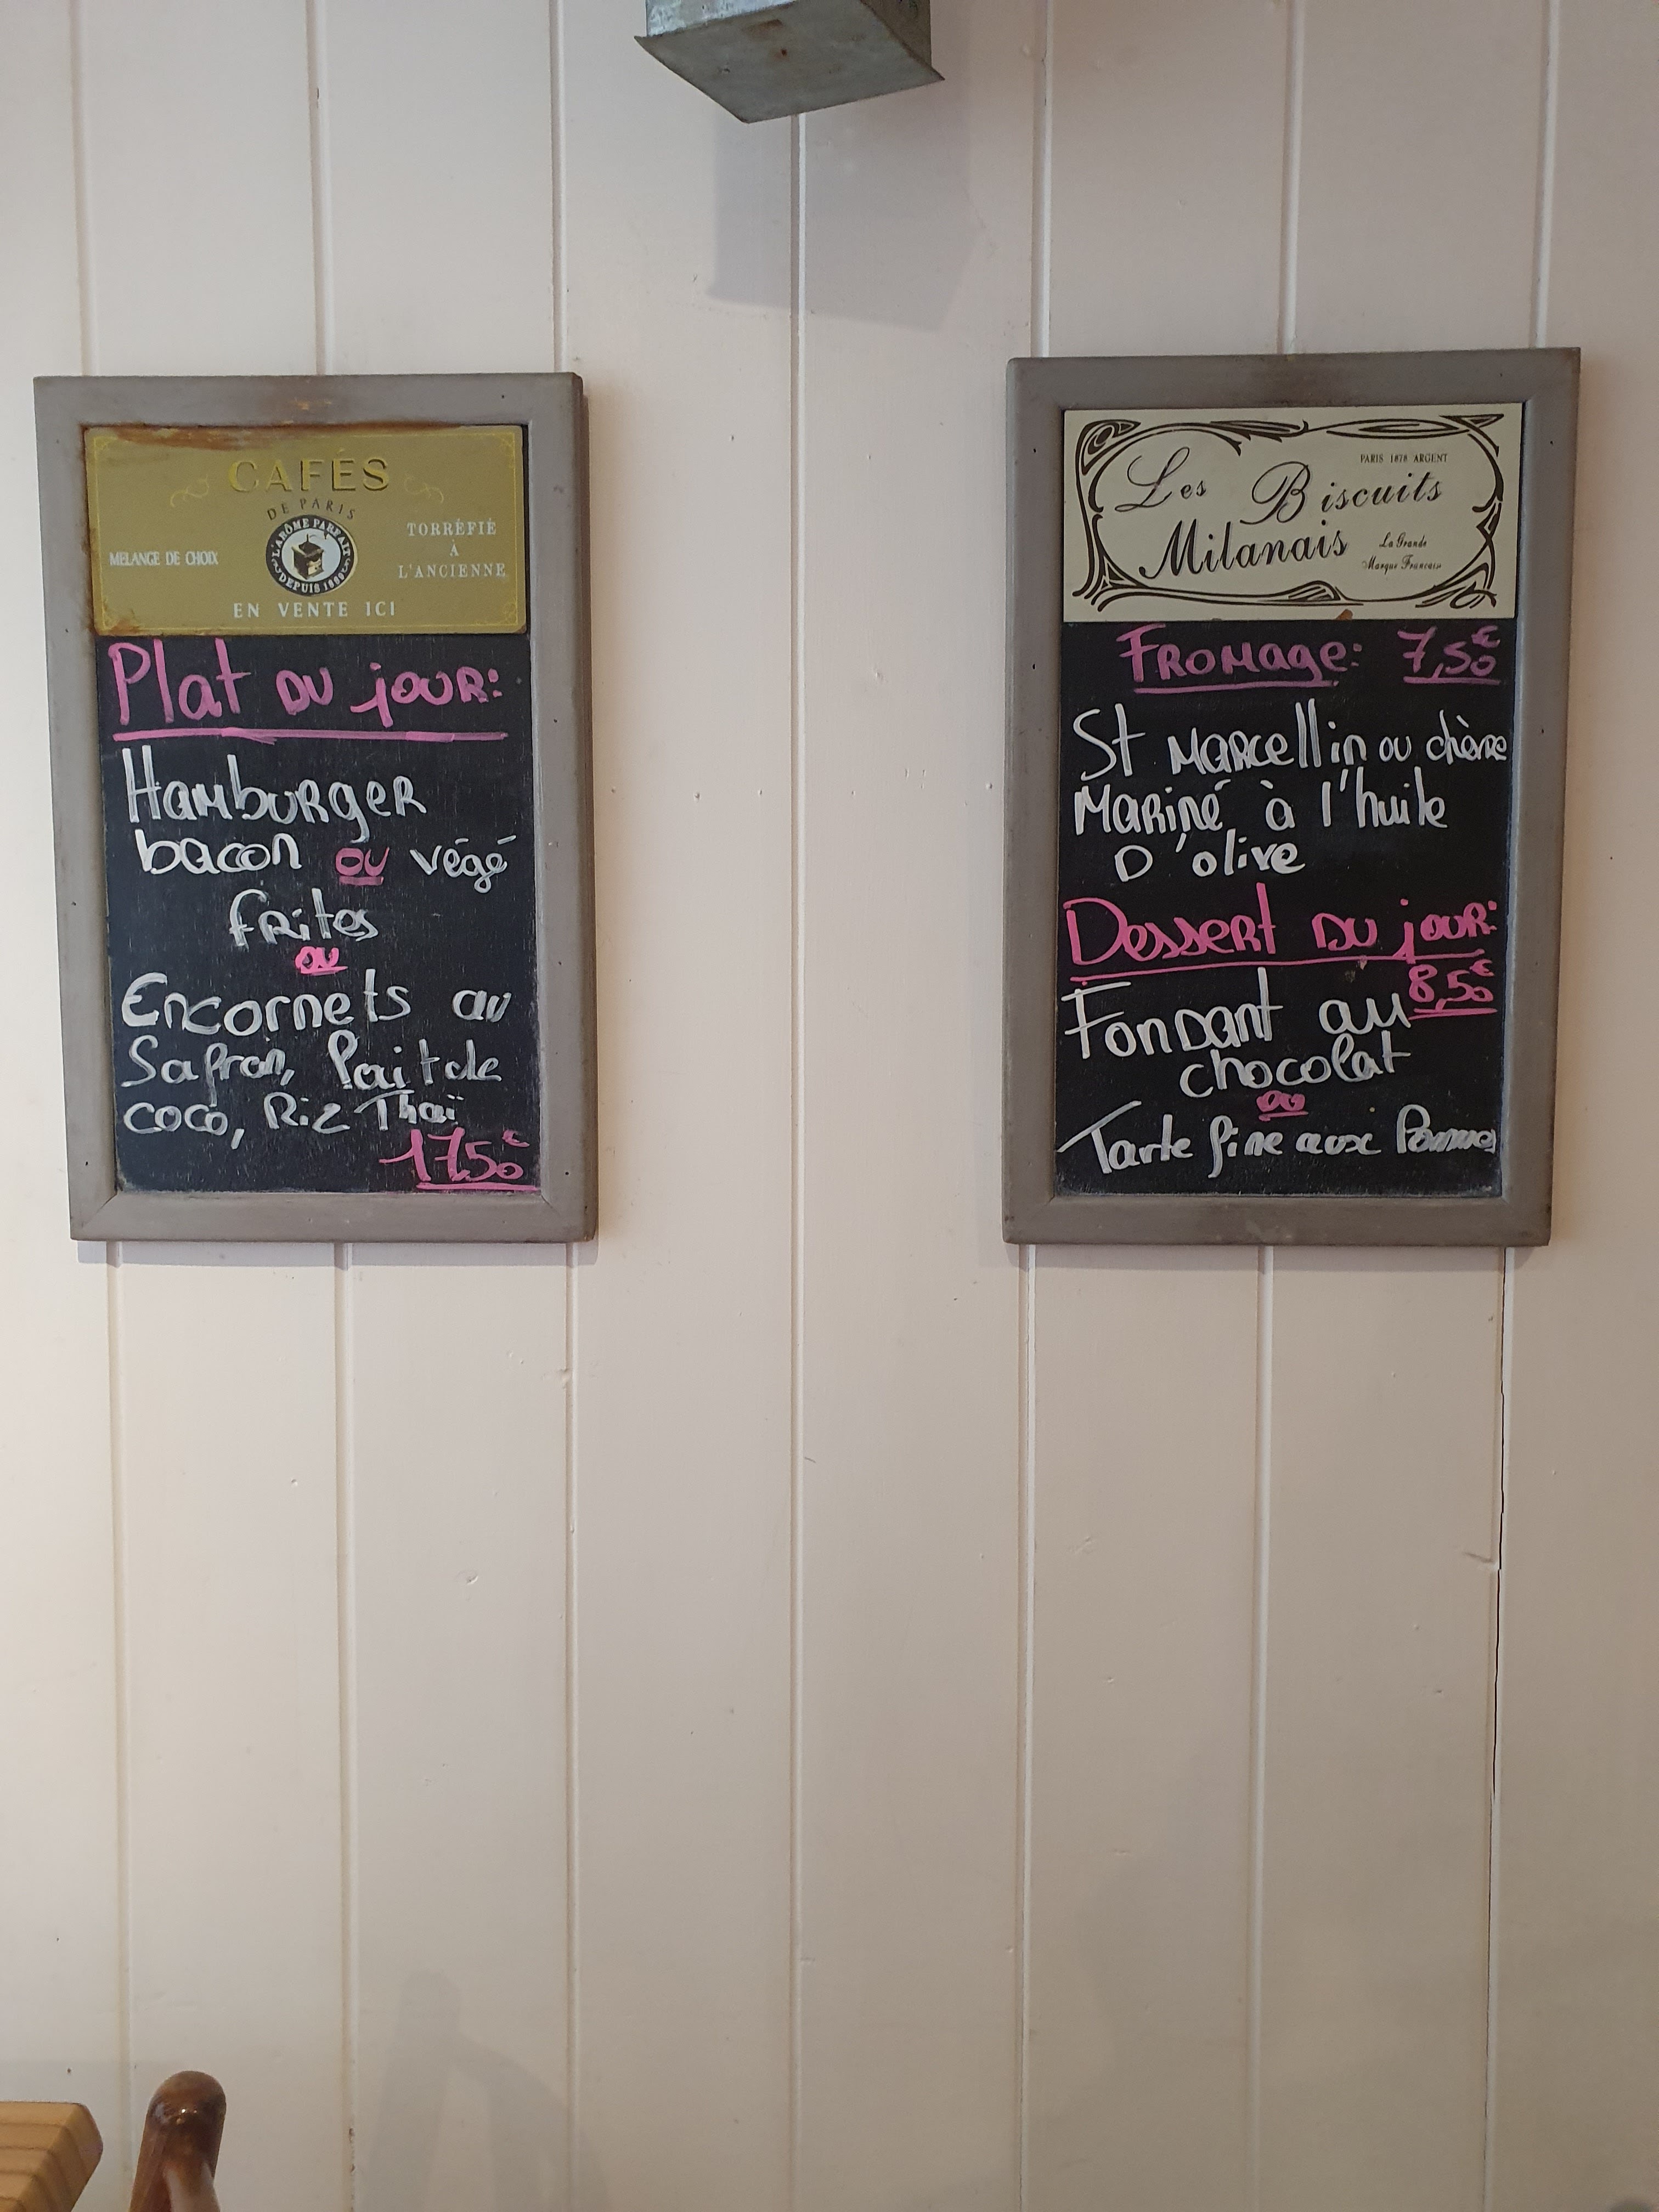 CAFÉS
DE PARIS
L'ARÔME PARFAIT
DEPUIS 1880
MELANGE DE CHOIX
TORRÉFIÉ
À
L'ANCIENNE
EN VENTE ICI
Plat DU jOUR:
Hamburger
bacon ou végé
frites
ou
Encornets au
Safran, lait de
coco, Riz Thaï
17,50€
Les Biscuits
PARIS 1878 ARGENT
Milanais
La Grande
Marque Francais
FROMage: 7,50€
St MARCellin ou chèvre
MARiné à l'huile
D'olive
Dessert DU jOUR:
8,50€
Fondant au
chocolat
ou
Tarte fine aux Pommes